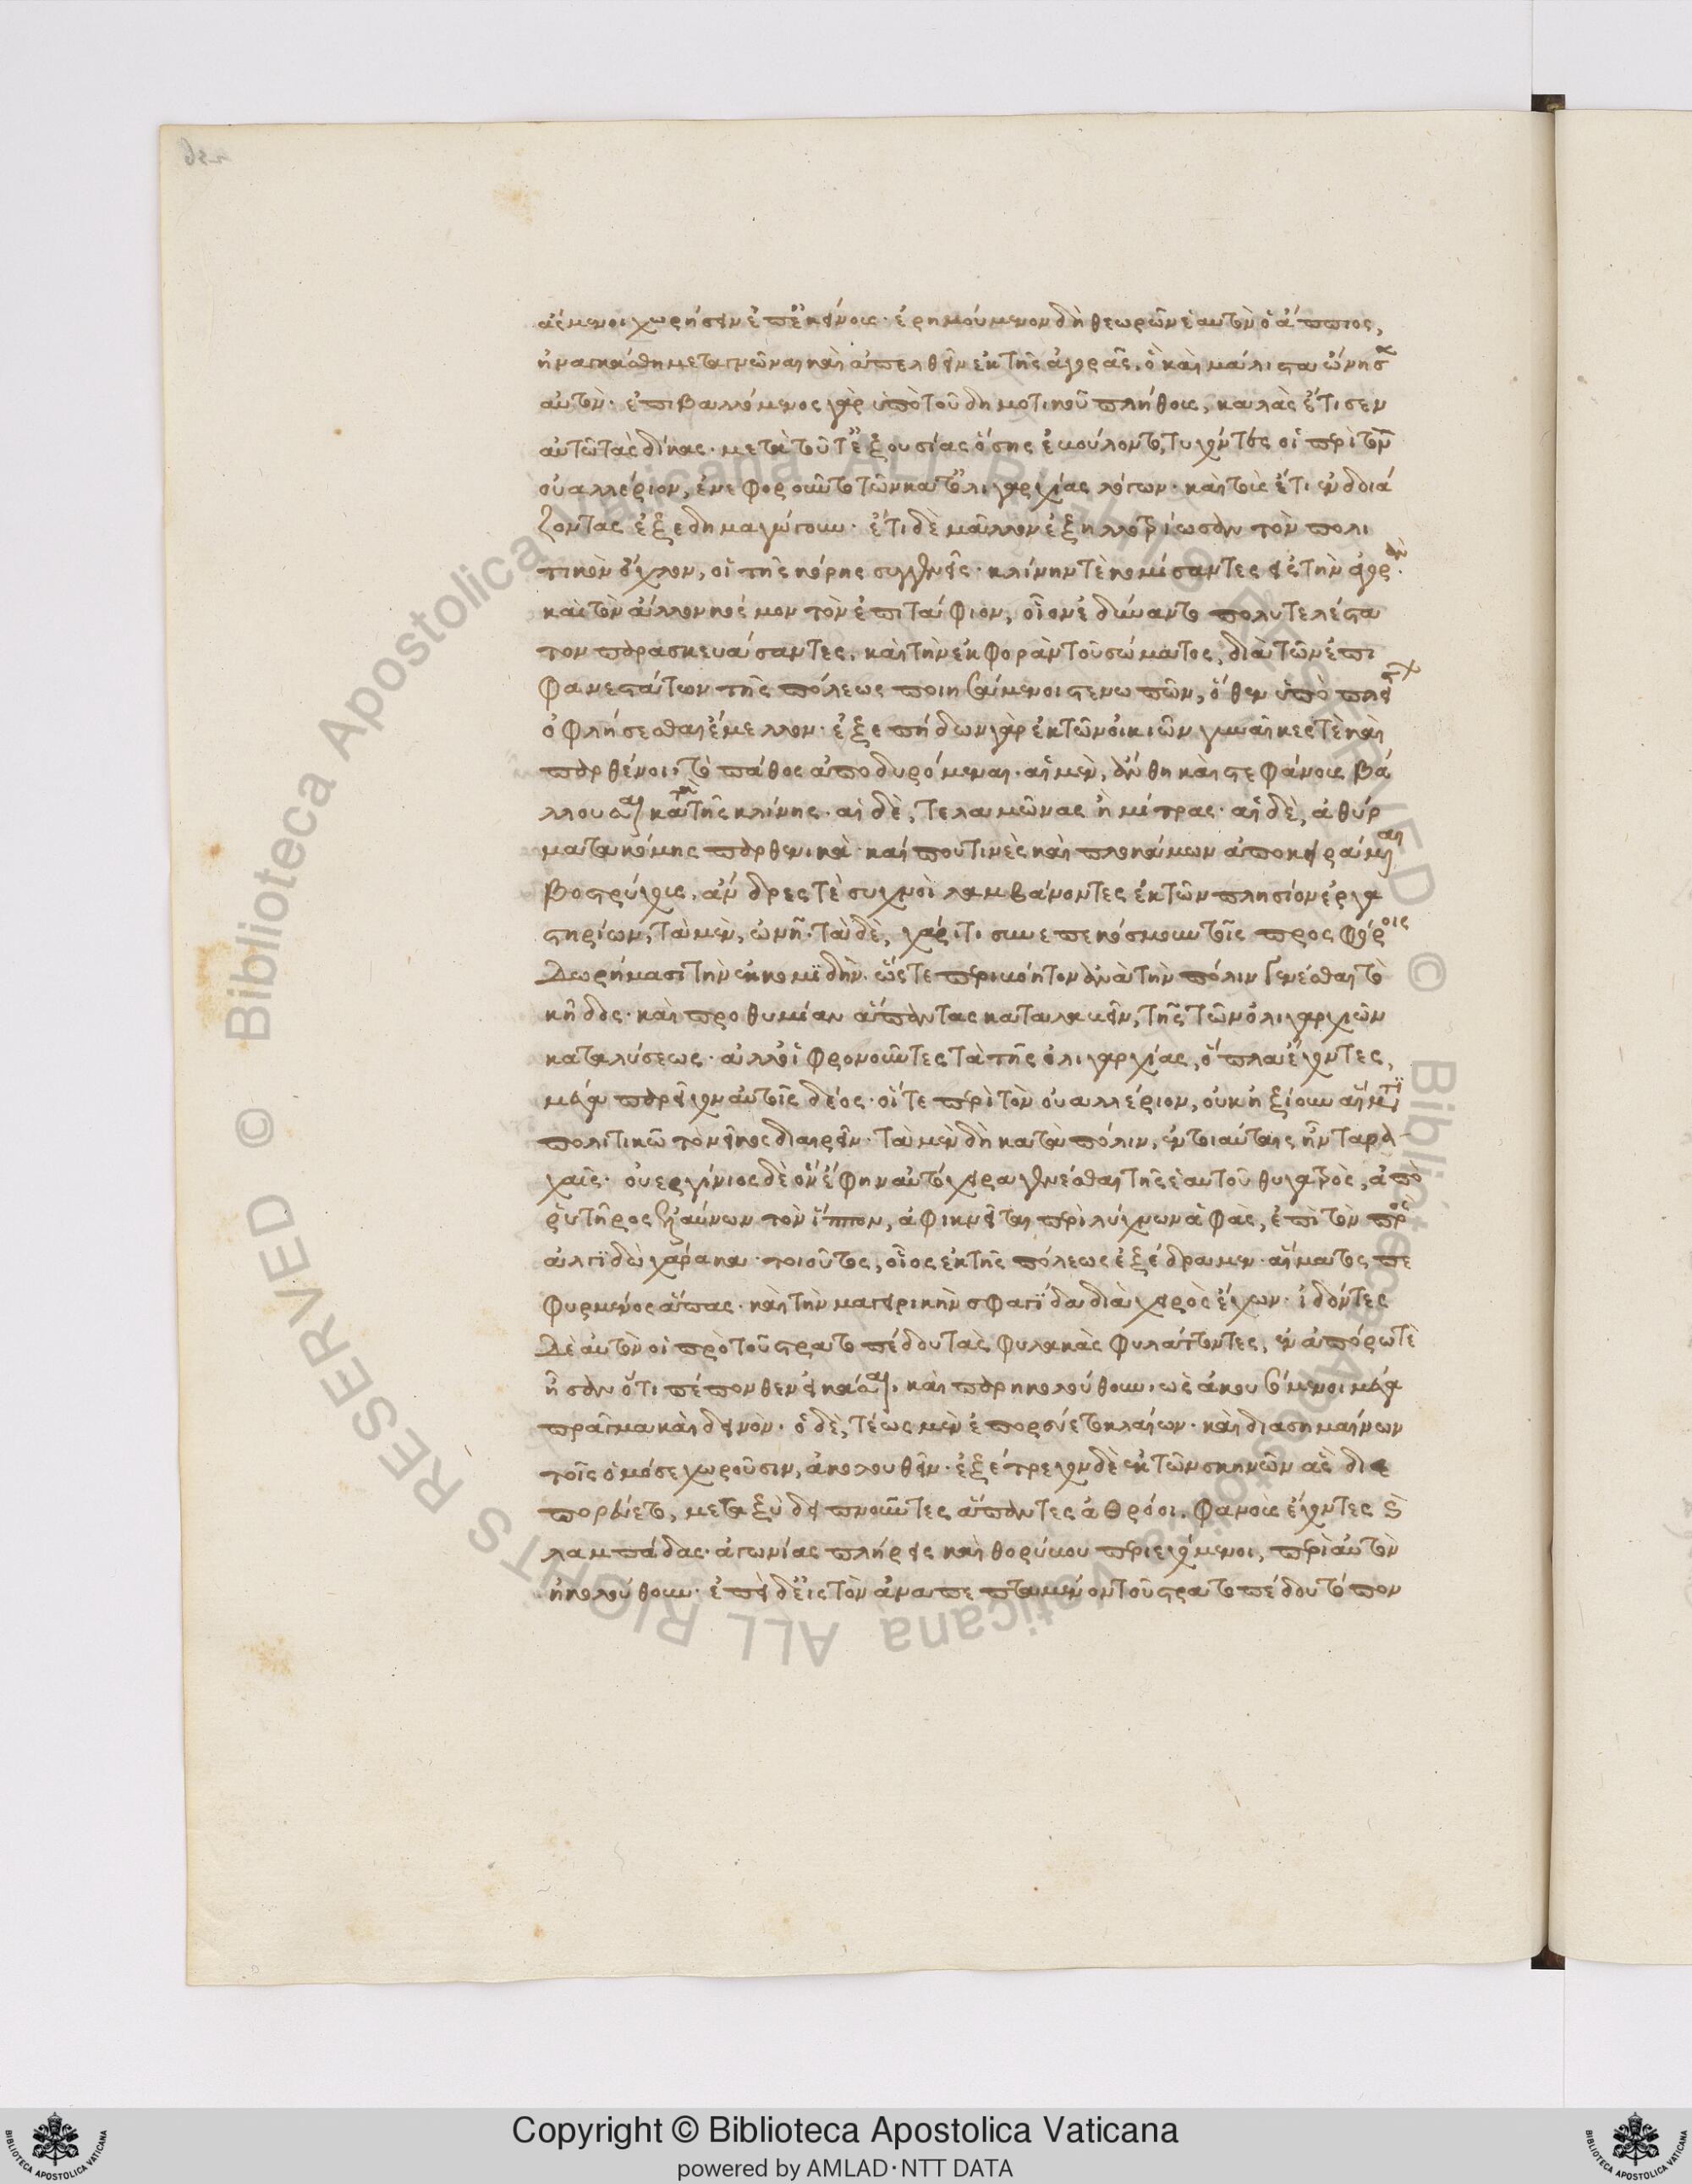 σάμενοι χωρήσειν ἐπ' ἐκείνους. ἐρημούμενον δὴ θεωρῶν ἑαυτὸν ὁ ἄππιος,
ἠναγκάσθη μεταγνῶναι καὶ ἀπελθεῖν ἐκ τῆς ἀγορᾶς. ὃ καὶ μάλιστα ὤνησεν
αὐτόν. ἐπιβαλλόμενος γὰρ ὑπὸ τοῦ δημοτικοῦ πλήθους, καλὰς ἔτισεν
αὐτῶ τὰς δίκας. μετὰ τοῦτ' ἐξουσίας ὅσης ἐβούλοντο, τυχόντες οἱ περὶ τὸν
οὐαλλέριον, ἐνεφοροῦντο τῶν κατ' ὀλιγαρχίας λόγων. καὶ τοὺς ἔτι ἐνδοιά
ζοντας ἐξεδημαγώγουν. ἔτι δὲ μᾶλλον ἐξηλλοτρίωσαν τὸν πολι
τικὸν ὄχλον, οἱ τῆς κόρης συγγενεῖς. κλίνην τὲ κομίσαντες εἰς τὴν ἀγορὰν
καὶ τὸν ἄλλον κόσμον τὸν ἐπιτάφιον, οἷον ἐδύναντο πολυτελέστα
τον παρασκευάσαντες, καὶ τὴν ἐκφορὰν τοῦ σώματος, διὰ τῶν ἐπι
φανεστάτων τῆς πόλεως ποιησάμενοι στενωπῶν, ὅθεν ὑπὸ πλείστων
ὀφθήσεσθαι ἔμελλον. ἐξεπήδων γὰρ ἐκ τῶν οἰκιῶν γυναῖκες τὲ καὶ
παρθένοι, τὸ πάθος ἀποδυρόμεναι. αἱ μὲν, ἄνθη καὶ στεφάνους βά
λλουσαι κατὰ τῆς κλίνης. αἱ δὲ, τελαμῶνας ἢ μίτρας. αἱ δὲ, ἀθύρ
ματα κόμης παρθενικὰ. καί πού τινὲς καὶ πλοκάμων ἀποκειράμεναι
βοστρύχους. ἄνδρες τὲ συχνοὶ λαμβάνοντες ἐκ τῶν πλησίον ἐργα
στηρίων, τὰ μὲν, ὠνῆ. τὰ δὲ, χάριτι συνεπεκόσμουν τοῖς προσφόροις
δωρήμασι τὴν ἐκκομιδήν. ὥστε περιβόητον ἀνὰ τὴν πόλιν γενέσθαι τὸ
κῆδος. καὶ προθυμίαν ἅπαντας καταλαβεῖν, τῆς τῶν ὀλιγαρχιῶν
καταλύσεως. ἀλλ' οἱ φρονοῦντες τὰ τῆς ὀλιγαρχίας, ὅπλα ἔχοντες,
μέγα παρεῖχον αὐτοῖς δέος. οἵ τε περὶ τὸν οὐαλλέριον, οὐκ ἠξίουν αἵματι
πολιτικῶ τὸ νεῖκος διαιρεῖν. τὰ μὲν δὴ κατὰ πόλιν, ἐν τοιαύταις ἦν ταρα
χαῖς. οὐεργίνιος δὲ ὃν ἔφην αὐτόχειρα γενέσθαι τῆς ἑαυτοῦ θυγατρὸς, ἀπὸ
ῥυτῆρος ἐλαύνων τὸν ἵππον, ἀφικνεῖται περὶ λύχνων ἁφὰς, ἐπὶ τὸν πρὸς
ἀλγϊδὼ χάρακα. τοιοῦτος, οἷος ἐκ τῆς πόλεως ἐξέδραμεν. αἵματος πε
φυρμένος ἅπας. καὶ τὴν μαγειρικὴν σφαγίδα διὰ χειρὸς ἔχων. ἰδόντες
δὲ αὐτὸν οἱ πρὸ τοῦ στρατοπέδου τὰς φυλακὰς φυλάττοντες, ἐν ἀπόρω τὲ
ἦσαν ὅτι πέπονθεν εἰκάσαι. καὶ παρηκολούθουν, ὡς ἀκουσόμενοι μέγα
πρᾶγμα καὶ δεινόν. ὁ δὲ, τέως μὲν ἐπορεύετο κλαίων. καὶ διασημαίνων
τοῖς ὁμόσε χωροῦσιν, ἀκολουθεῖν. ἐξέτρεχον δὲ ἐκ τῶν σκηνῶν ἃς δι
πορεύετο, μεταξὺ δειπνοῦντες ἅπαντες ἀθρόοι. φανοὺς ἔχοντες καὶ
λαμπάδας. ἀγωνίας πλήρεις καὶ θορύβου περιεχόμενοι, περὶ αὐτὸν
ἠκολούθουν. ἐπεὶ δ' εἰς τὸν ἀναπεπταμένον τοῦ στρατοπέδου τόπον